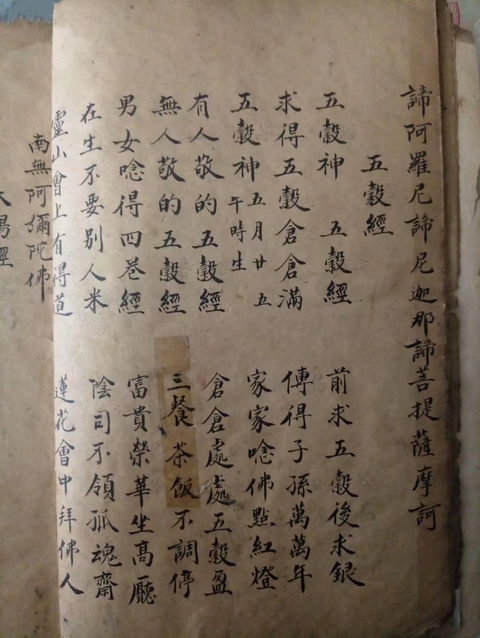 諦阿羅尼諦尼迦那諦菩提薩摩訶
五穀經
五穀神 五穀經 前求五穀後求銀
求得五穀倉倉滿 傳得子孫萬萬年
五穀神 五月廿五午時生 家家唸佛點紅燈
有人敬的五穀經 倉倉處處五穀盈
無人敬的五穀經 三餐茶飯不調停
男女唸得四卷經 富貴榮華坐高廳
在生不要別人米 陰司不領孤魂齋
靈山會上有得道 蓮花會中拜佛人
南無阿彌陀佛
太陽經